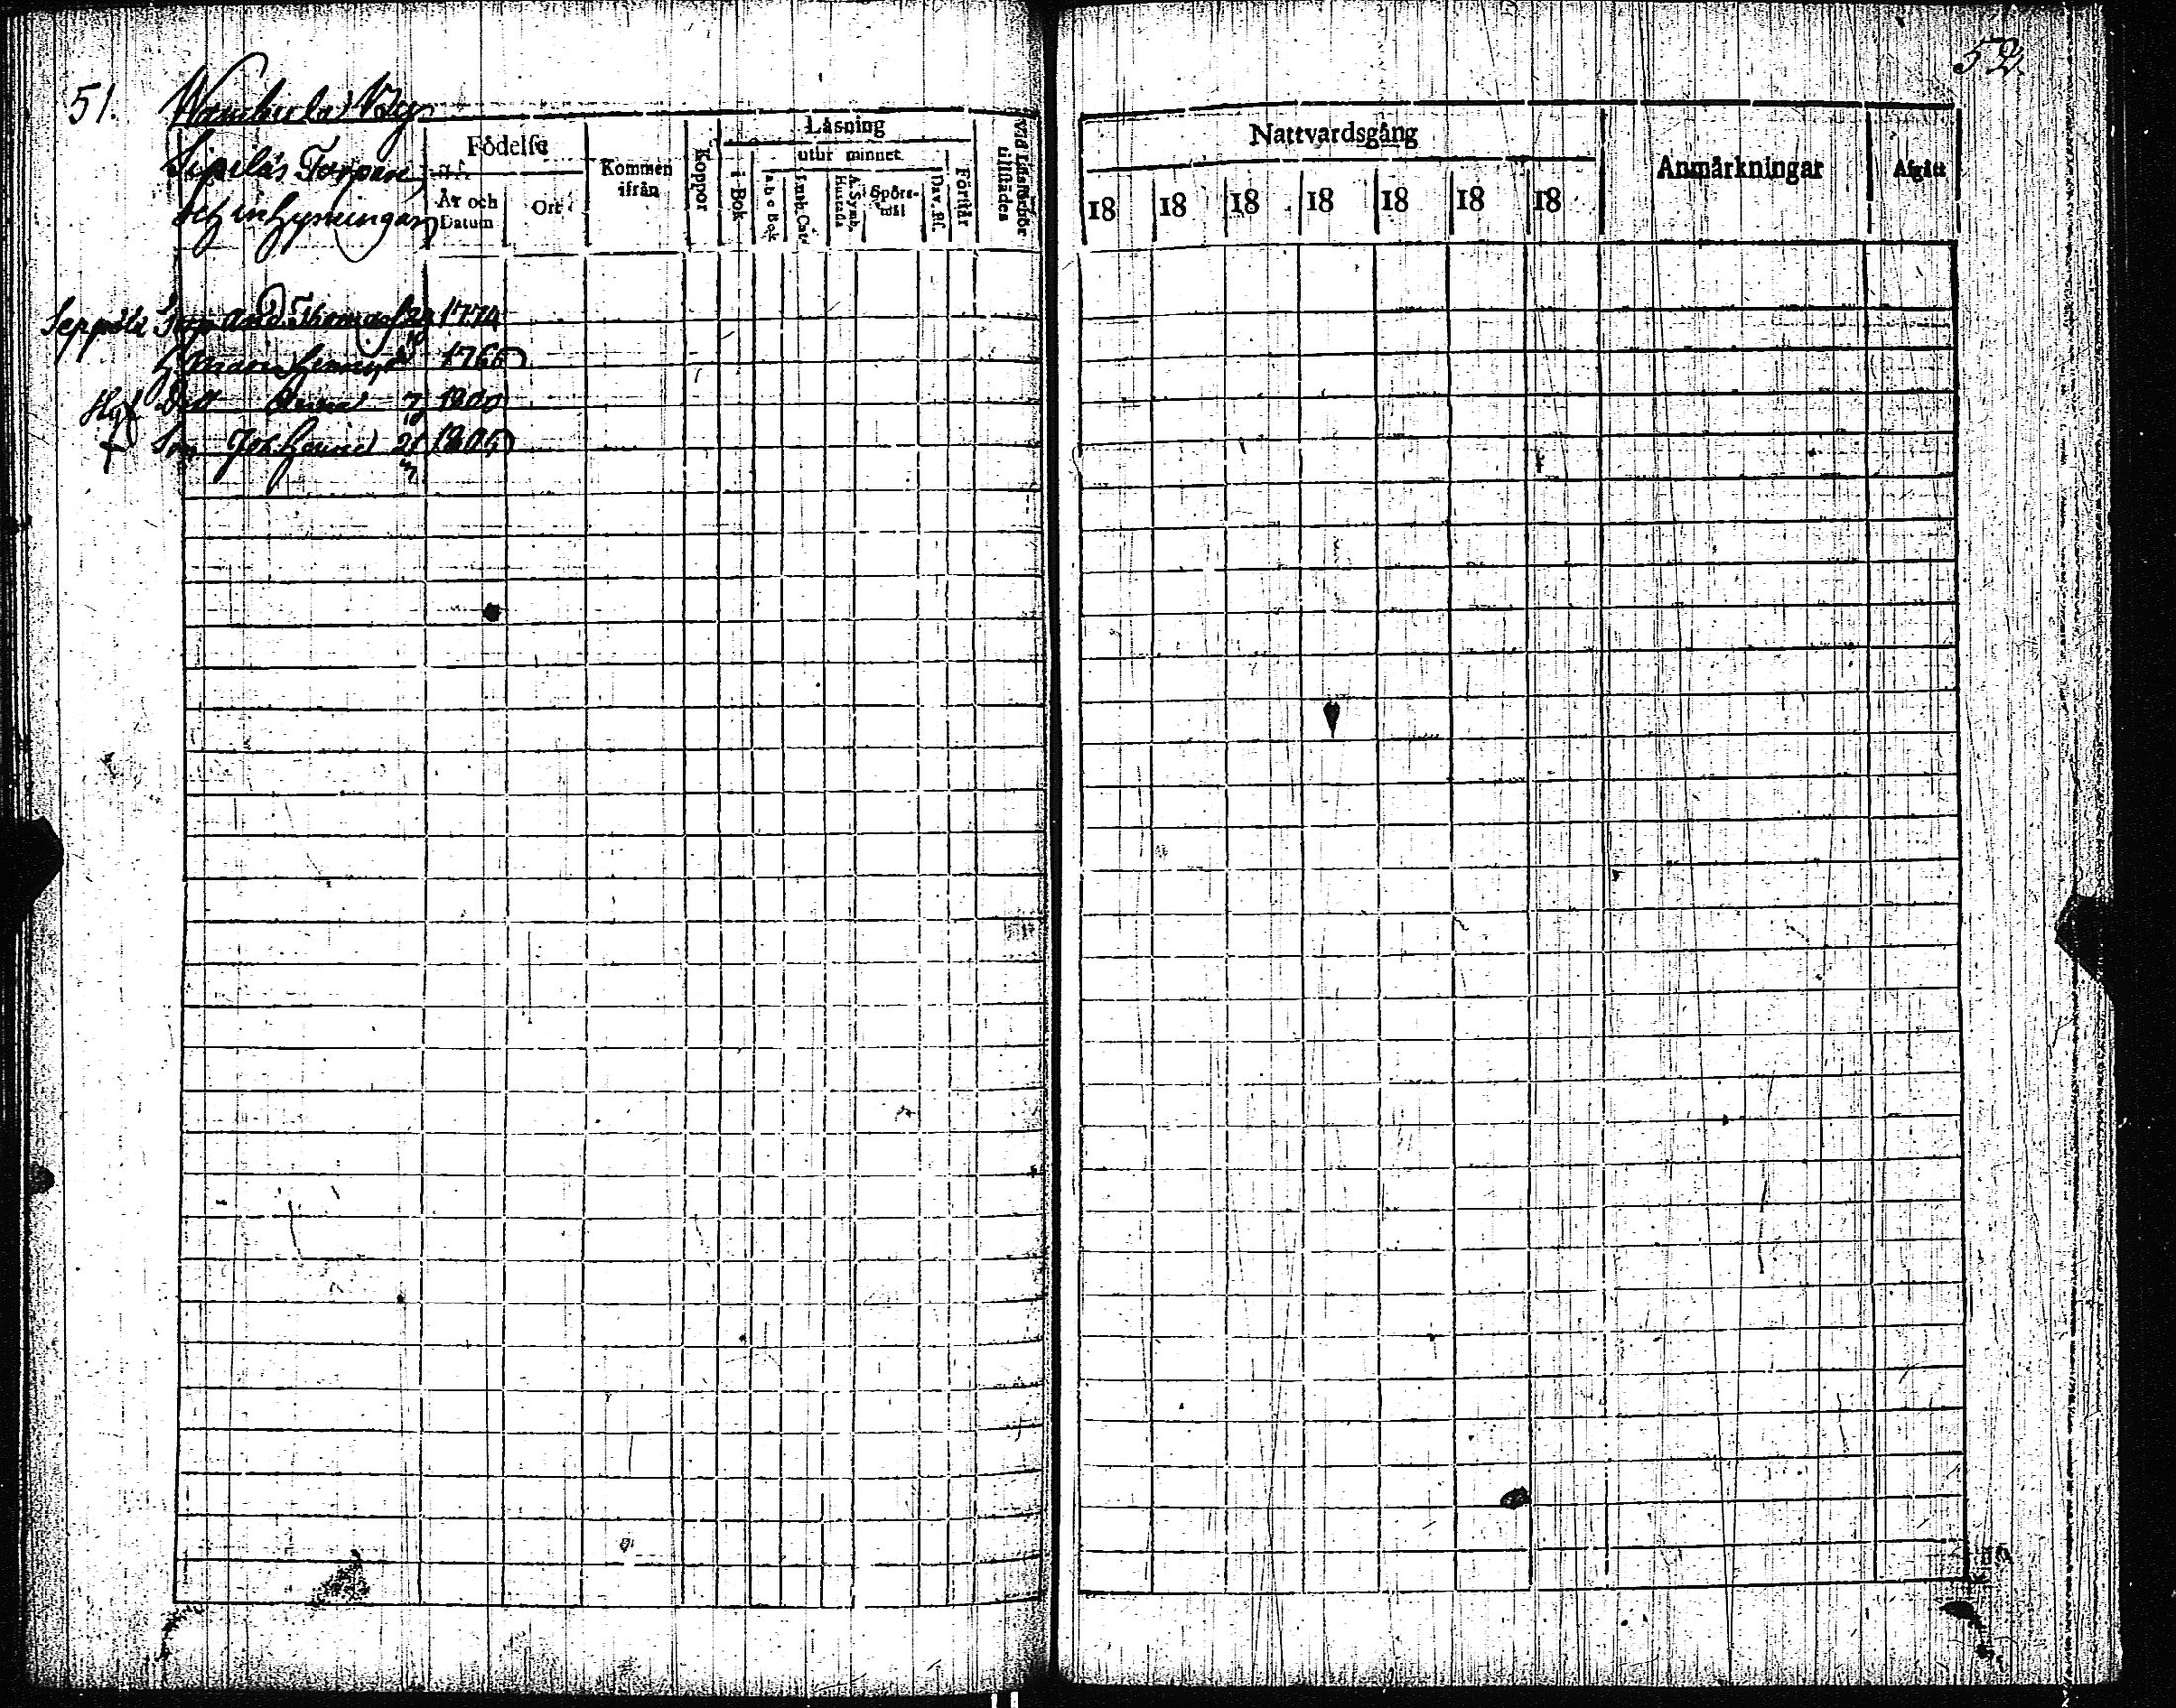 51. Wambula By
Sipilä's Torpare
och Inhysningar
Födelse
År och Datum
Ort
Kommen ifrån
Koppor
Läsning
i Bok
utur minnet
a b c Bok
Luth. Cat.
A. Symb. Hustafla
Spörs-mål
Dav. Ps.
Förstår
Vid Läsförhör tillstädes
Seppälä Torp And. Thomasf 29/10 1774
H Maria 1766
Dott Anna 7/10 1800
† Son Joh. 21/3 1805
52.
Nattvardsgång
18 18 18 18 18 18 18
Anmärkningar
Afgått